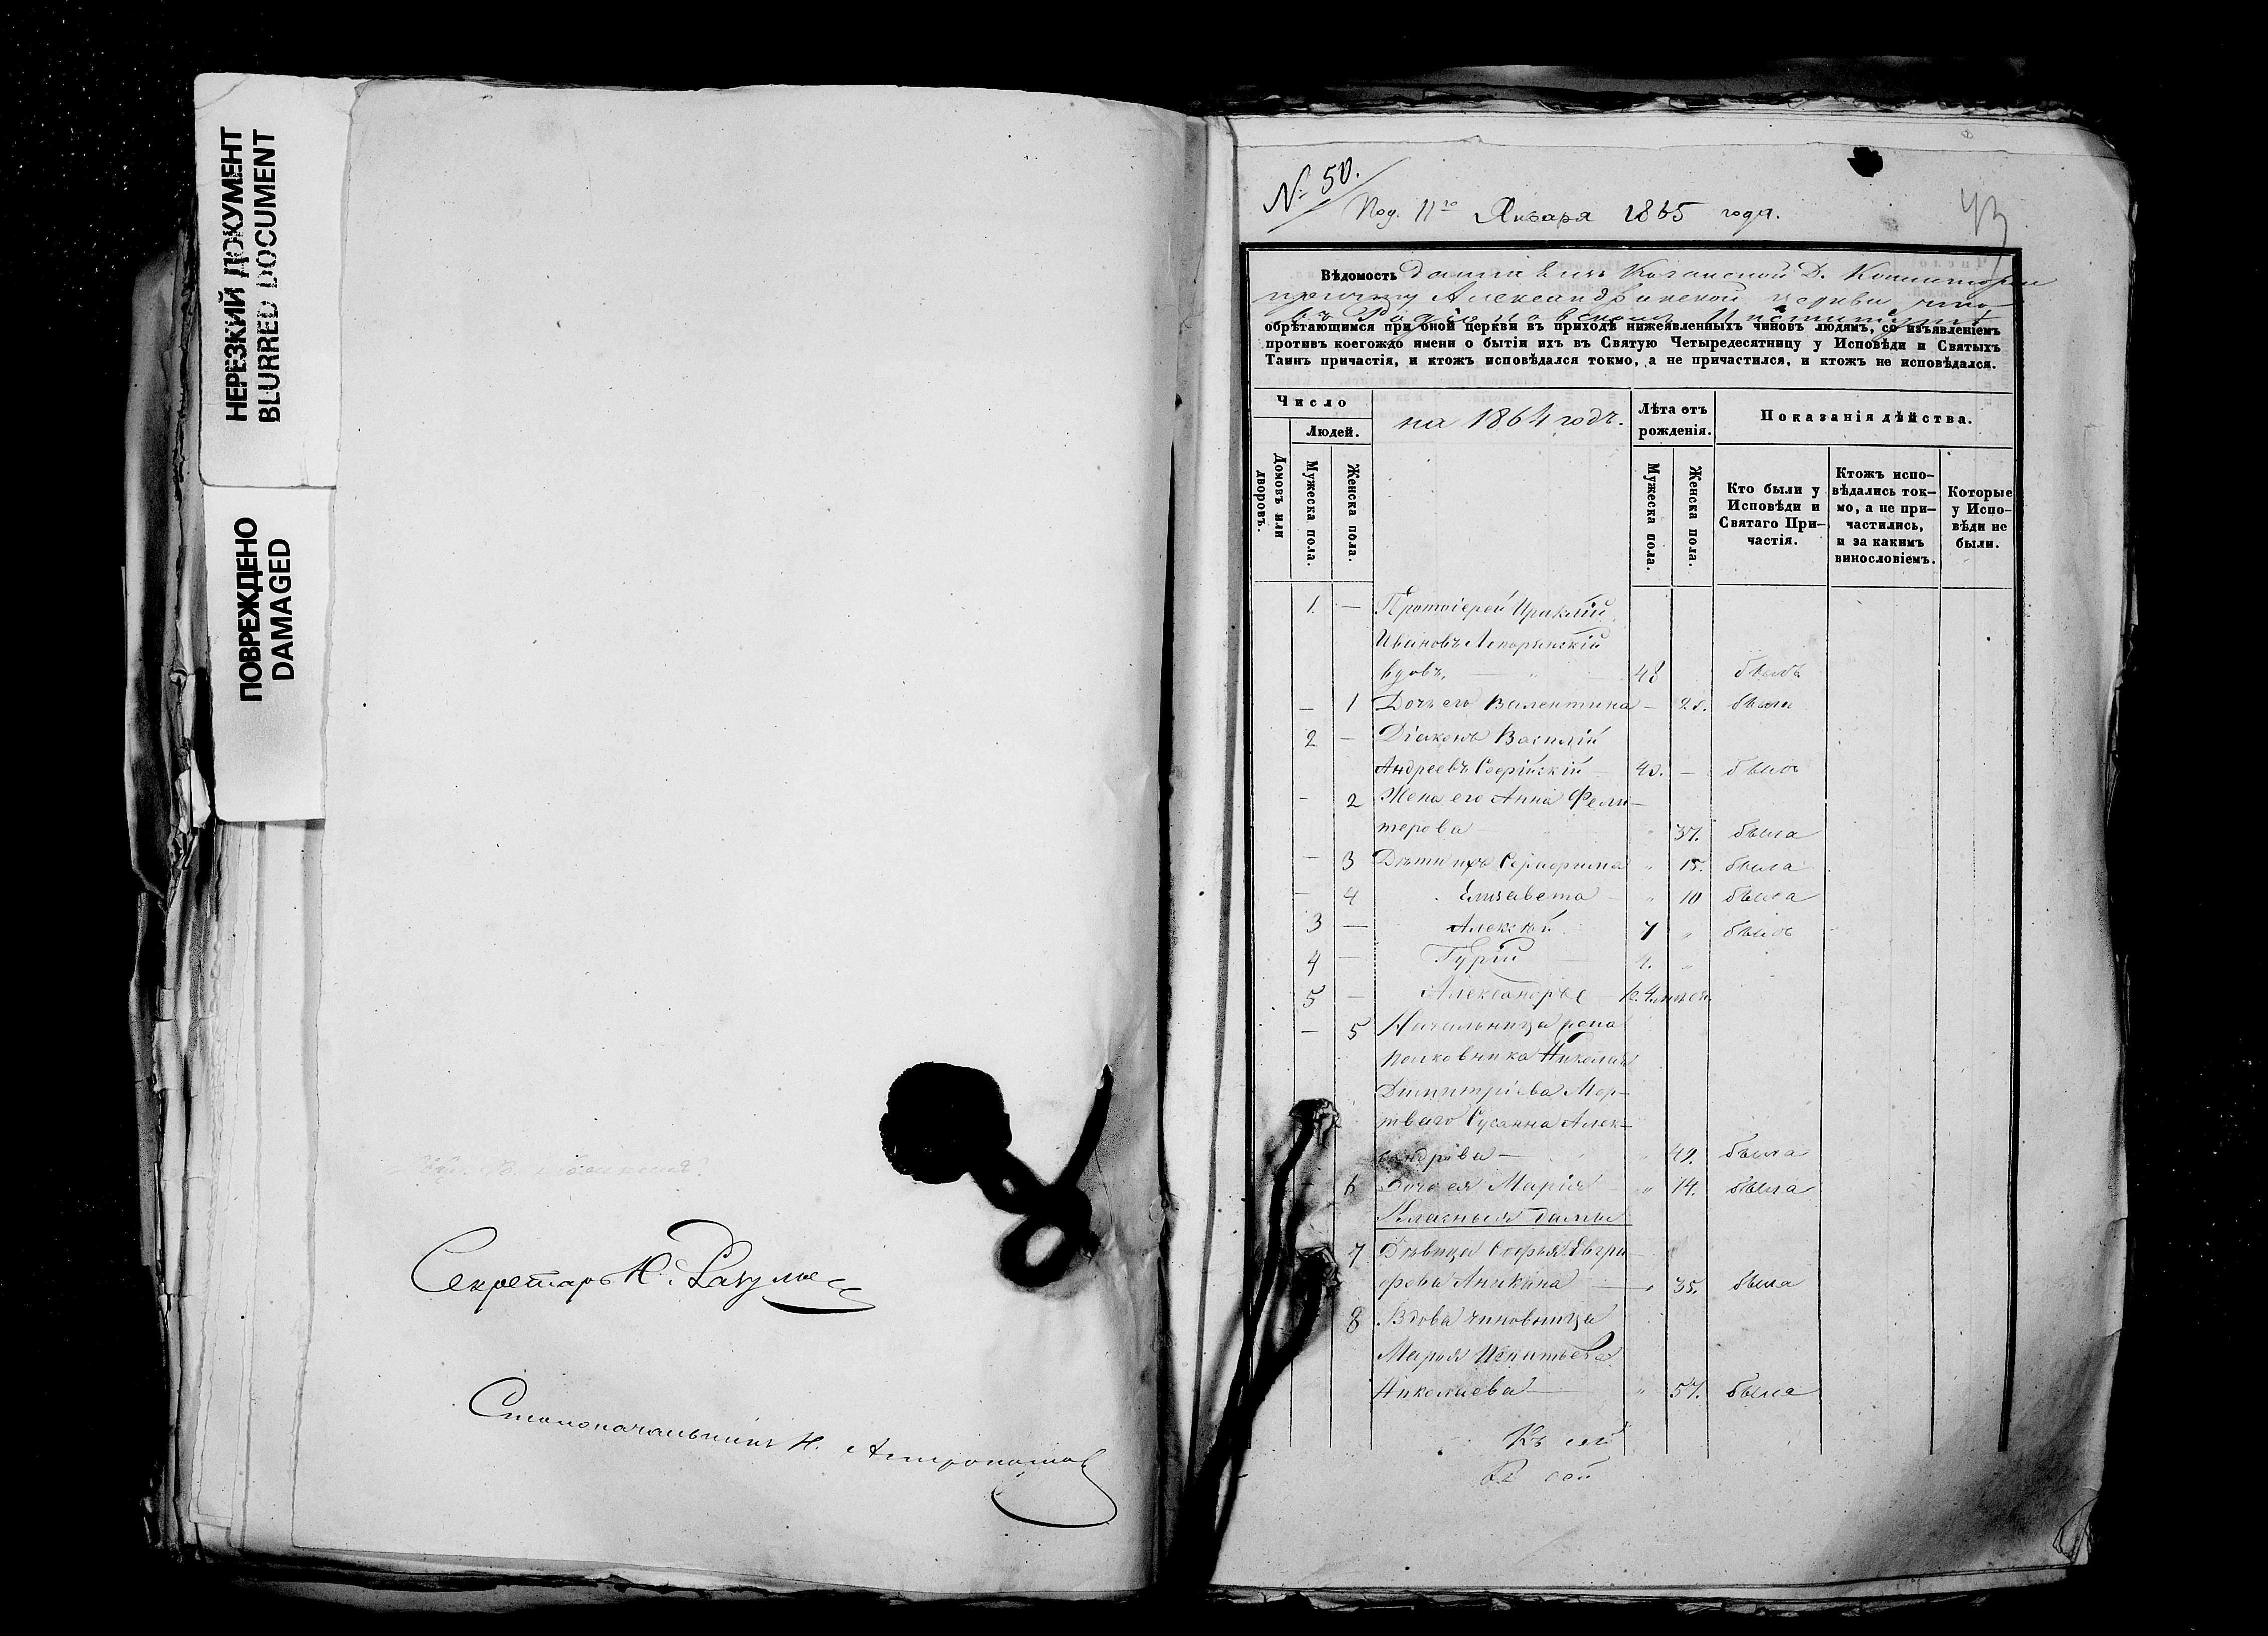 НЕРЕЗКИЙ ДОКУМЕНТ
BLURRED DOCUMENT
ПОВРЕЖДЕНО
DAMAGED
Секретарь Н. Разумов
Столоначальникъ Н.
№ 50.
Под. 11го Января 1865 года.
43
Вѣдомость данная изъ Казанской Д. Консисторіи
причту Александринской церкви что
въ Родіоновскомъ Институтѣ
обрѣтающимся при оной церкви въ приходѣ нижеявленныхъ чиновъ людямъ, со изъявленіемъ
противъ коегождо имени о бытіи ихъ въ Святую Четыредесятницу у Исповѣди и Святыхъ
Таинъ причастія, и ктожъ исповѣдался токмо, а не причастился, и ктожъ не исповѣдался.
Число
Людей.
Домовъ или дворовъ.
Мужеска пола.
Женска пола.
на 1864 годъ.
Лѣта отъ рожденія.
Мужеска пола.
Женска пола.
Показанія дѣйства.
Кто были у Исповѣди и Святаго При-частія.
Ктожъ испо-вѣдались ток-мо, а не при-частились, и за какимъ винословіемъ.
Которые у Испо-вѣди не были.
1. — Протоіерей Ираклій
Ивановъ
вдовъ, 48 былъ
— 1 Дочь его Валентина — 20. была
2 — Діаконъ Василій
Андреевъ Софійскій 40. — былъ
— 2 Жена его Анна
терова " 37. была
— 3 Дѣти ихъ Серафима " 15. была
— 4 Елизавета " 10 была
3 — Алексѣй 7 " былъ
4 — Гурій "
5 — Александръ
— 5 Начальница
полковника Николая
Димитріева Мер-
тваго Сусанна Алек-
сандрова — " 49. была
— 6 Дочь ея Марія " 14. была
Классныя дамы
7 Дѣвица Софья Евгра-
фова Аникина " 35. была
8 Вдова чиновница
Марья Игнатьева
Николаева — " 57. была
Къ сей
Къ сей